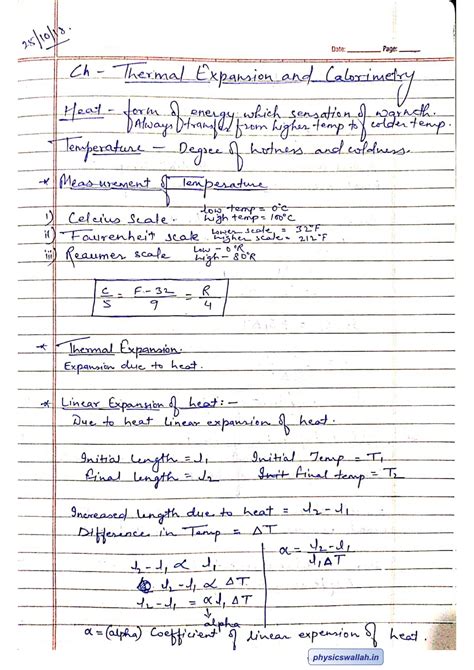 25/10/18.
Date: Page:
Ch - Thermal Expansion and Calorimetry
Heat - form of energy which sensation of warmth.
Always transfer from higher temp to colder temp.
Temperature - Degree of hotness and coldness.
* Measurement of Temperature
i) Celcius scale. low temp = 0°C
high temp = 100°C
ii) Faurenheit scale lower scale = 32°F
higher scale = 212°F
iii) Reaumer scale low - 0°R
high - 80°R
C/5 = F-32/9 = R/4
* Thermal Expansion.
Expansion due to heat.
* Linear Expansion of heat:-
Due to heat linear expansion of heat.
Initial length = l1 Initial Temp = T1
final length = l2 Init final temp = T2
Increased length due to heat = l2 - l1
Difference in Temp = ΔT
l2 - l1 α l1
l2 - l1 α ΔT
l2 - l1 = α l1 ΔT
alpha
α = l2 - l1 / l1 ΔT
α = (alpha) Coefficient of linear expension of heat.
physicswallah.in